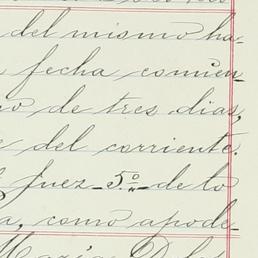 del mismo ha-
fecha comien-
de tres dias,
del corriente.
Juez 5º de lo
como apode-